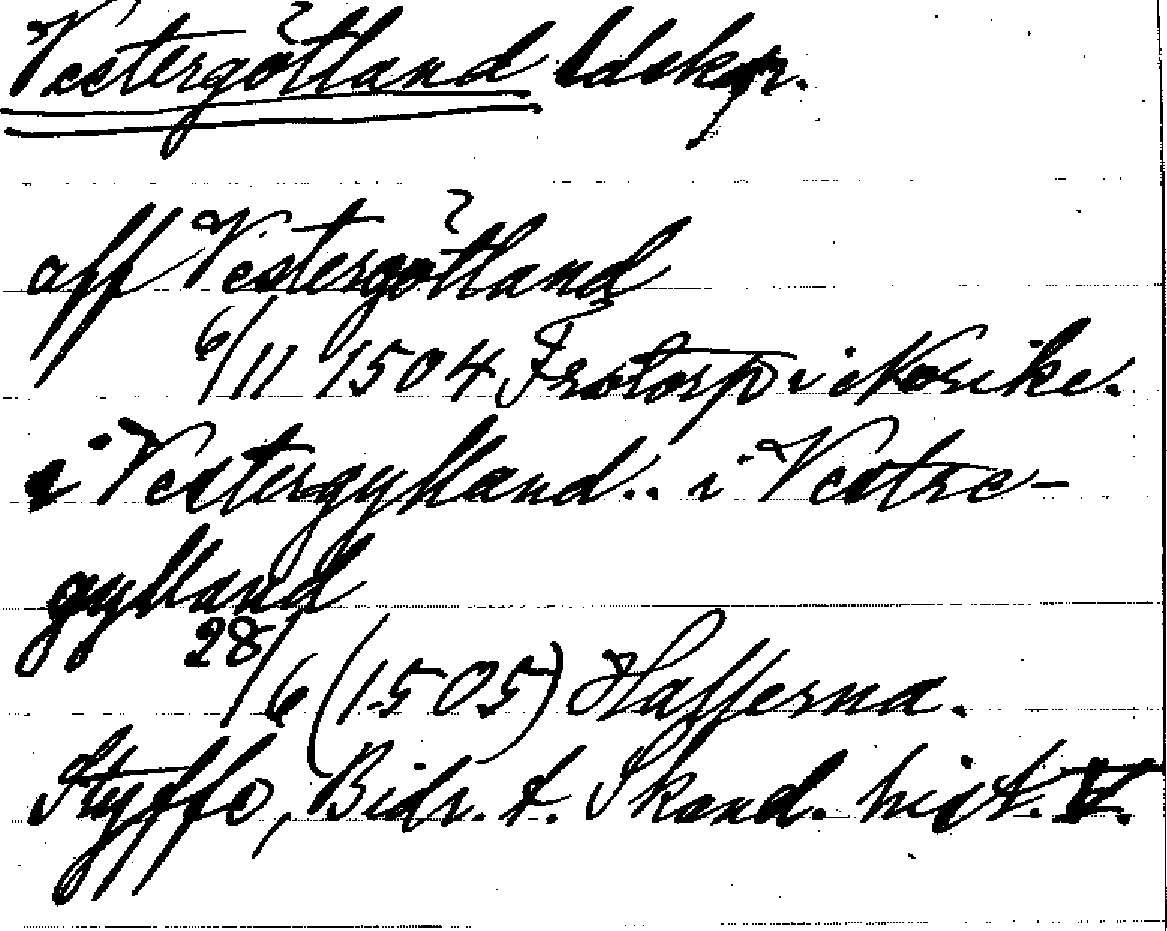 Vestergötland ldskp.
aff Vestergötland
6/11 1504 Frötorp i Nerike.
i Vestergylland.. i Vestre-
gylland
28/6 (1505) Hafferna.
Styffe, Bidr. t. Skand. hist. V.